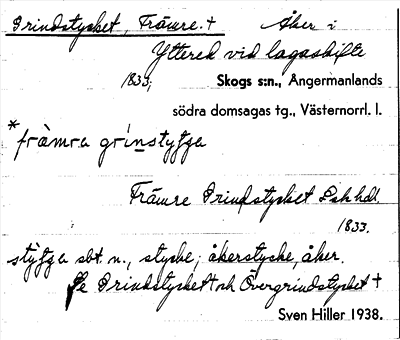 Grindstycket, Främre. + Åker i
Yttered vid lagaskifte
1833; Skogs s:n., Ångermanlands
södra domsagas tg., Västernorrl. l.
*fràmra grinstyʃʒa
Främre Grindstycket Lsk hdl.
1833.
stỳʃʒa sbt. n., stycke; åkerstycke, åker.
Se Grindstycket + och Övergrindstycket +
Sven Hiller 1938.